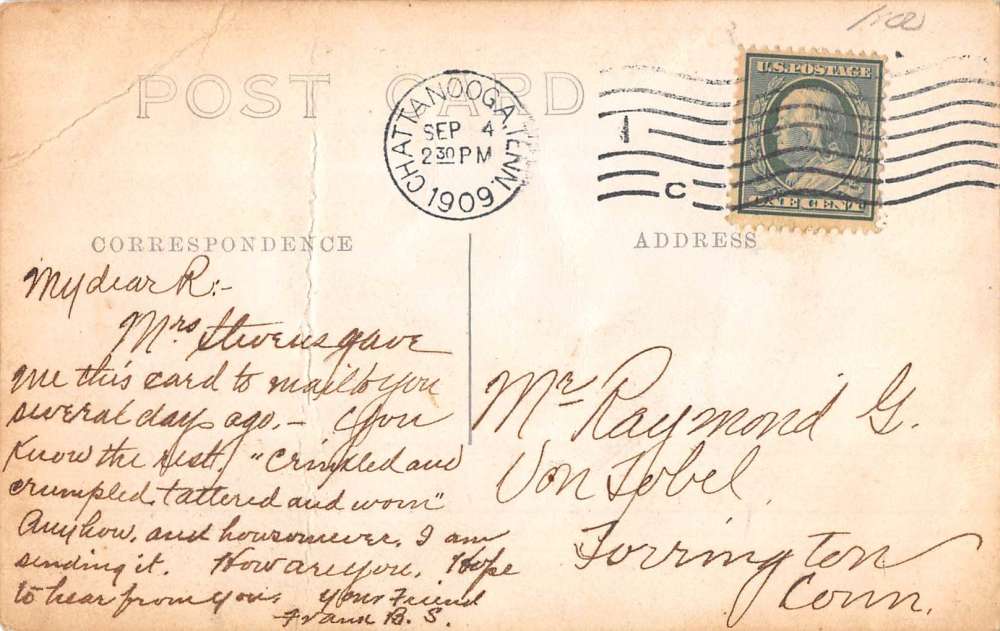 1500
POST CARD
CHATTANOOGA, TENN.
SEP 4
2 30 PM
1909
1
C
U.S. POSTAGE
ONE CENT
CORRESPONDENCE
ADDRESS
My dear R:-
Mrs Stevens gave
me this card to mail to you
several days ago. - You
know the rest. "Crinkled and
crumpled, tattered and worn"
Anyhow, and housomever, I am
sending it. How are you, Hope
to hear from you, your Friend
Frank B. S.
Mr Raymond G.
Von Tobel,
Torrington
Conn.